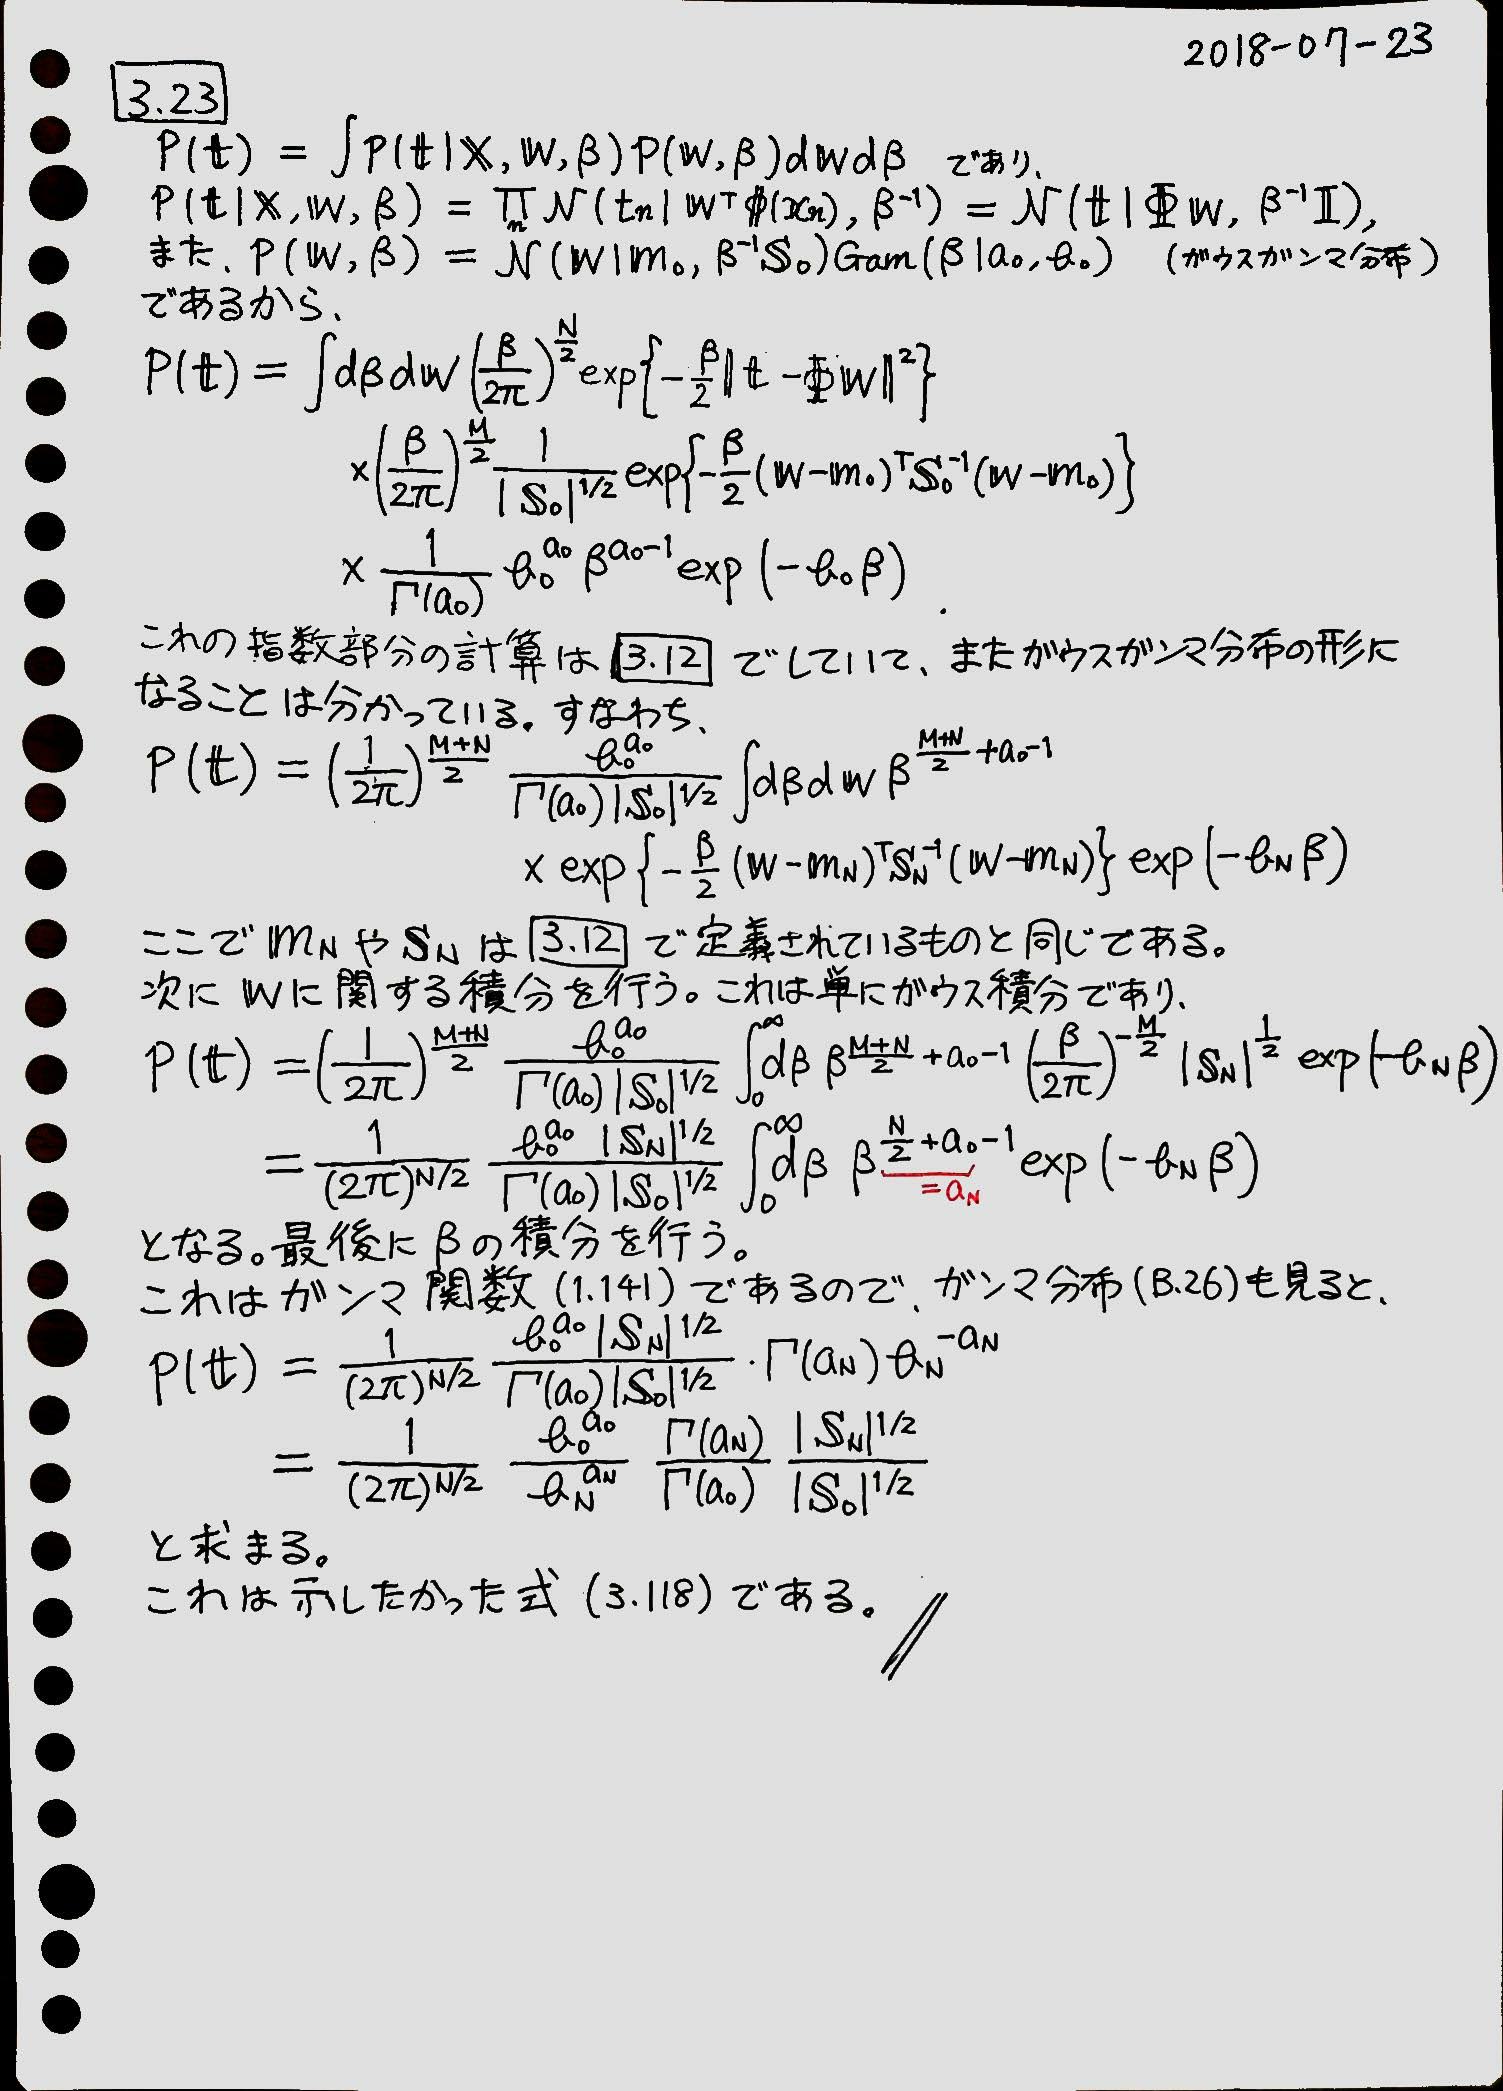 2018-07-23
3.23
P(𝕥) = ∫P(𝕥|𝕏, 𝕎, β)P(𝕎, β)d𝕎dβ であり、
P(𝕥|𝕏, 𝕎, β) = ∏ₙ N(tₙ|𝕎ᵀφ(xₙ), β⁻¹) = N(𝕥|Φ𝕎, β⁻¹𝕀),
また、P(𝕎, β) = N(𝕎|𝕞₀, β⁻¹𝕊₀)Gam(β|a₀, b₀) (ガウスガンマ分布)
であるから、
P(𝕥) = ∫dβd𝕎 (β/2π)^{N/2} exp{-β/2 ‖𝕥 - Φ𝕎‖²}
×(β/2π)^{M/2} 1/|𝕊₀|^{1/2} exp{-β/2 (𝕎-𝕞₀)ᵀ𝕊₀⁻¹(𝕎-𝕞₀)}
× 1/Γ(a₀) b₀^{a₀} β^{a₀-1} exp(-b₀β).
これの指数部分の計算は 3.12 でしていて、またガウスガンマ分布の形に
なることは分かっている。すなわち、
P(𝕥) = (1/2π)^{(M+N)/2} b₀^{a₀}/(Γ(a₀)|𝕊₀|^{1/2}) ∫dβd𝕎 β^{(M+N)/2+a₀-1}
× exp{-β/2 (𝕎-𝕞_N)ᵀ𝕊_N⁻¹(𝕎-𝕞_N)} exp(-b_Nβ)
ここで 𝕞_N や 𝕊_N は 3.12 で定義されているものと同じである。
次に 𝕎に関する積分を行う。これは単にガウス積分であり、
P(𝕥) = (1/2π)^{(M+N)/2} b₀^{a₀}/(Γ(a₀)|𝕊₀|^{1/2}) ∫₀^∞ dβ β^{(M+N)/2+a₀-1} (β/2π)^{-M/2} |𝕊_N|^{1/2} exp(-b_Nβ)
= 1/(2π)^{N/2} b₀^{a₀}|𝕊_N|^{1/2}/(Γ(a₀)|𝕊₀|^{1/2}) ∫₀^∞ dβ β^{N/2+a₀-1} exp(-b_Nβ)
=a_N
となる。最後に βの積分を行う。
これはガンマ関数 (1.141) であるので、ガンマ分布(B.26)も見ると、
P(𝕥) = 1/(2π)^{N/2} b₀^{a₀}|𝕊_N|^{1/2}/(Γ(a₀)|𝕊₀|^{1/2}) · Γ(a_N) b_N^{-a_N}
= 1/(2π)^{N/2} b₀^{a₀}/b_N^{a_N} Γ(a_N)/Γ(a₀) |𝕊_N|^{1/2}/|𝕊₀|^{1/2}
と求まる。
これは示したかった式 (3.118) である。 //